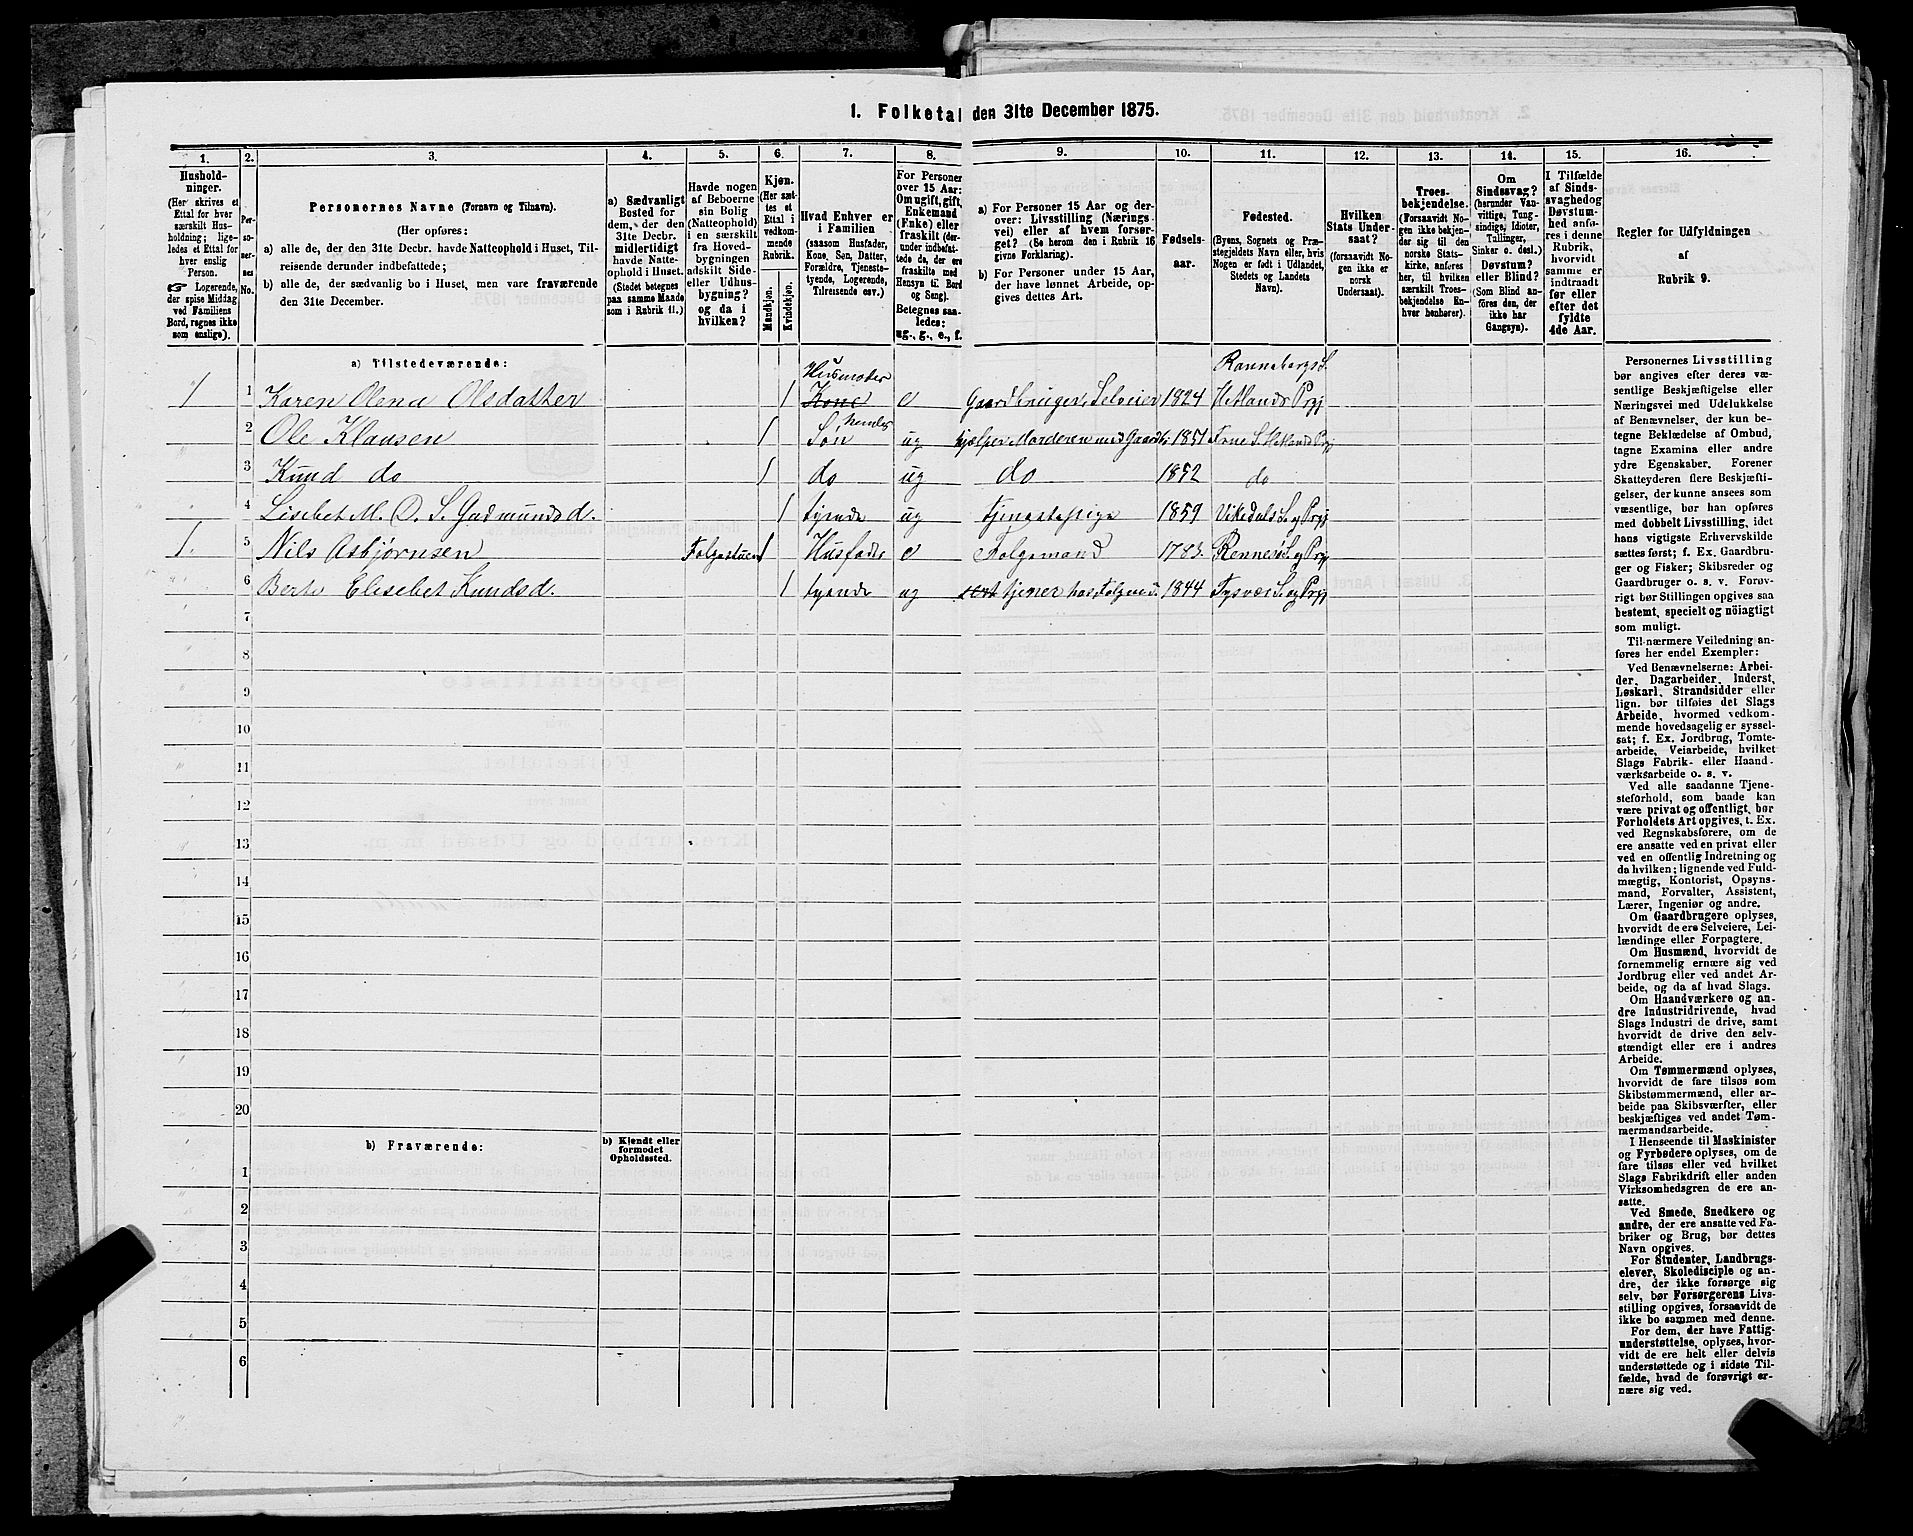 1. Folketal den 31te December 1875.
1.
2.
3.
4.
5.
6.
7.
8.
9.
10.
11.
12.
13.
14.
15.
16.
Hushold-
ninger.
(Her skrives et
Ettal for hver
særskilt Hus-
holdning; lige-
ledes et Ettal for
hver enslig
Person.
☞ Logerende,
der spise Middag
ved Familiens
Bord, regnes ikke
som enslige).
Per-
so-
ner-
nes
No.
Personernes Navne (Fornavn og Tilnavn).
(Her opføres:
a) alle de, der den 31te Decbr. havde Natteophold i Huset, Til-
reisende derunder indbefattede;
b) alle de, der sædvanlig bo i Huset, men vare fraværende
den 31te December.
a) Sædvanligt
Bosted for
dem, der den
31te Decbr.
midlertidigt
havde Natte-
ophold i Huset.
(Stedet betegnes
paa samme Maade
som i Rubrik 11.)
Havde nogen
af Beboerne
sin Bolig
(Natteophold)
i en særskilt
fra Hoved-
bygningen
adskilt Side-
eller Udhus-
bygning?
og da i
hvilken?
Kjøn.
(Her sæt-
tes et
Ettal i
vedkom-
mende
Rubrik.
Mandkjøn.
Kvindekjøn.
Hvad Enhver er
i Familien
(saasom Husfader,
Kone, Søn, Datter,
Forældre, Tjeneste-
tyende, Logerende,
Tilreisende osv.)
For Personer
over 15 Aar:
Om ugift, gift,
Enkemand
(Enke) eller
fraskilt (der-
under indbefat-
tede de, der ere
fraskilte med
Hensyn til Bord
og Seng).
Betegnes saa-
ledes:
ug., g., e., f.
a) For Personer 15 Aar og der-
over: Livsstilling (Nærings-
vei) eller af hvem forsør-
get? (Se herom den i Rubrik 16
givne Forklaring).
b) For Personer under 15 Aar,
der have lønnet Arbeide, op-
gives dettes Art.
Fødsels-
aar.
Fødested.
(Byens, Sognets og Præ-
stegjeldets Navn eller, hvis
Nogen er født i Udlandet,
Stedets og Landets
Navn).
Hvilken
Stats Under-
saat?
(forsaavidt No-
gen ikke er
norsk
Undersaat).
Troes-
bekjendelse.
(Forsaavidt No-
gen ikke bekjen-
der sig til den
norske Stats-
kirke, anføres
her, til hvilken
særskilt Troes-
bekjendelse En-
hver henhører).
Om
Sindssvag?
(herunder Van-
vittige, Tung-
sindige, Idioter,
Tullinger,
Sinker o. desl.)
Døvstum?
eller Blind?
(Som Blind an-
føres den, der
ikke har
Gangsyn).
I Tilfælde
af Sinds-
svaghed og
Døvstum-
hed anfø-
res i denne
Rubrik,
hvorvidt
samme er
indtraadt
før eller
efter det
fyldte
4de Aar.
Regler for Udfyldningen
af
Rubrik 9.
a) Tilstedeværende:
1 1 Karen Olena Olsdatter 1 Husmoder Kone e Gaardbruger, Selveier 1824 Rannebergs S. Hetlands Prgj
2 Ole Klausen 1 Søn ug hjælper Moderen med Gaardbr. 1851 S. Hetlands Prgj
3 Knud do 1 do ug do 1852 do
4 Lisebet M. O. S. Gudmundsd. 1 tyende ug tjenestepige 1859 Vikedals S. og Prgj
1 5 Nils Asbjørnsen 1 Husfader e Folgemand 1783. Rennesø S. og Prgj
6 Berte Elisebet Knudsd. 1 tyende ug tjener hos Folgmd. 1844 Tysvær S. og Prgj
7
8
9
10
11
12
13
14
15
16
17
18
19
20
b) Fraværende:
b) Kjendt eller
formodet
Opholdssted.
1
2
3
4
5
6
Personernes Livsstilling
bør angives efter deres væ-
sentlige Beskjæftigelse eller
Næringsvei med Udelukkelse
af Benævnelser, der kun be-
tegne Beklædelse af Ombud,
tagne Examina eller andre
ydre Egenskaber. Forener
Skatteyderen flere Beskjæfti-
gelser, der kunne ansees som
væsentlige, bør han opføres
med dobbelt Livsstilling, idet
hans vigtigste Erhvervskilde
sættes først; f. Ex. Gaardbru-
ger og Fisker; Skibsreder og
Gaardbruger o. s. v. Forøv-
rigt bør Stillingen opgives saa
bestemt, specielt og nöiagtigt
som muligt.
Til nærmere Veiledning an-
føres her endel Exempler:
Ved Benævnelserne: Arbei-
der, Dagarbeider, Inderst,
Løskarl, Strandsidder eller
lign. bør tilføies det Slags
Arbeide, hvormed vedkom-
mende hovedsagelig er syssel-
sat; f. Ex. Jordbrug, Tomte-
arbeide, Veiarbeide, hvilket
Slags Fabrik- eller Haand-
værksarbeide o. s. v.
Ved alle saadanne Tjene-
steforhold, som baade kan
være privat og offentligt, bør
Forholdets Art opgives, t. Ex.
ved Regnskabsførere, om de
ere ansatte ved en privat eller
ved en offentlig Indretning og
da hvilken; lignende ved Fuld-
mægtig, Kontorist, Opsyns-
mand, Forvalter, Assistent,
Lærer, Ingeniør og andre.
Om Gaardbrugere oplyses,
hvorvidt de ere Selveiere, Lei-
lændinge eller Forpagtere.
Om Husmænd, hvorvidt de
fornemmelig ernære sig ved
Jordbrug eller ved andet Ar-
beide, og da af hvad Slags.
Om Haandværkere og an-
dre Industridrivende, hvad
Slags Industri de drive, samt
hvorvidt de drive den selv-
stændigt eller ere i andres
Arbeide.
Om Tømmermænd oplyses,
hvorvidt de fare tilsøs som
Skibstømmermænd, eller ar-
beide paa Skibsværfter, eller
beskjæftiges ved andet Tøm-
mermandsarbeide.
I Henseende til Maskinister
og Fyrbødere oplyses, om de
fare tilsøs eller ved hvilket
Slags Fabrikdrift eller anden
Virksomhedsgren de ere an-
satte.
Ved Smede, Snedkere og
andre, der ere ansatte ved Fa-
briker og Brug, bør dettes
Navn opgives.
For Studenter, Landbrugs-
elever, Skoledisciple og an-
dre, der ikke forsørge sig
selv, bør Forsørgerens Livs-
stilling opgives, forsaavidt de
ikke bo sammen med denne.
For dem, der have Fattig-
understøttelse, oplyses, hvor-
vidt de ere helt eller delvis
understøttede og i sidste Til-
fælde, hvad de forøvrigt er-
nære sig ved.